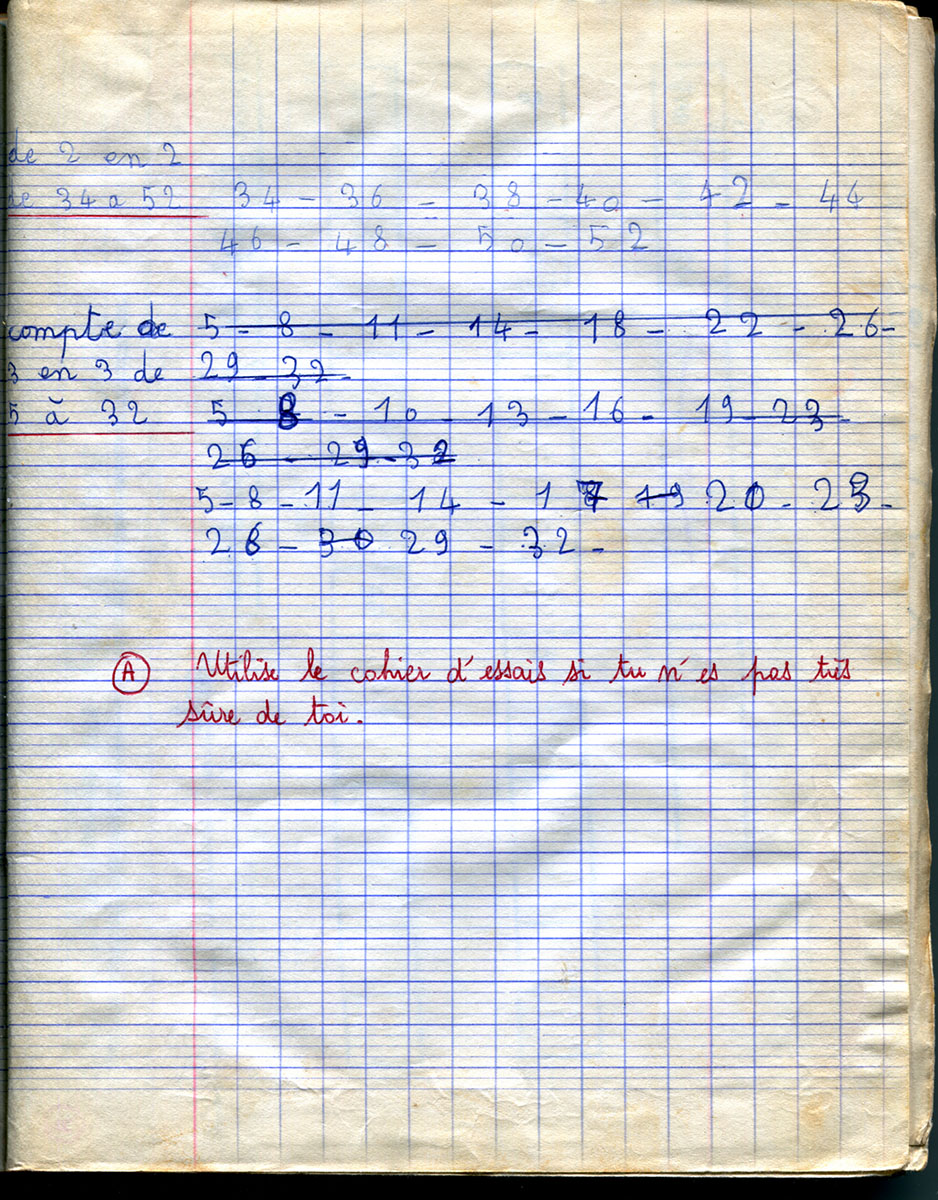 de 2 en 2
de 34 a 52 34 - 36 - 38 - 40 - 42 - 44
46 - 48 - 50 - 52
compte de 5 - 8 - 11 - 14 - 18 - 22 - 26 -
3 en 3 de 29 - 32 -
5 à 32 5 - 8 - 10 - 13 - 16 - 19 - 23 -
26 - 29 - 32
5 - 8 - 11 - 14 - 17 19 20 - 23 -
26 - 30 29 - 32 -
A Utilise le cahier d'essais si tu n'es pas très
sûre de toi.